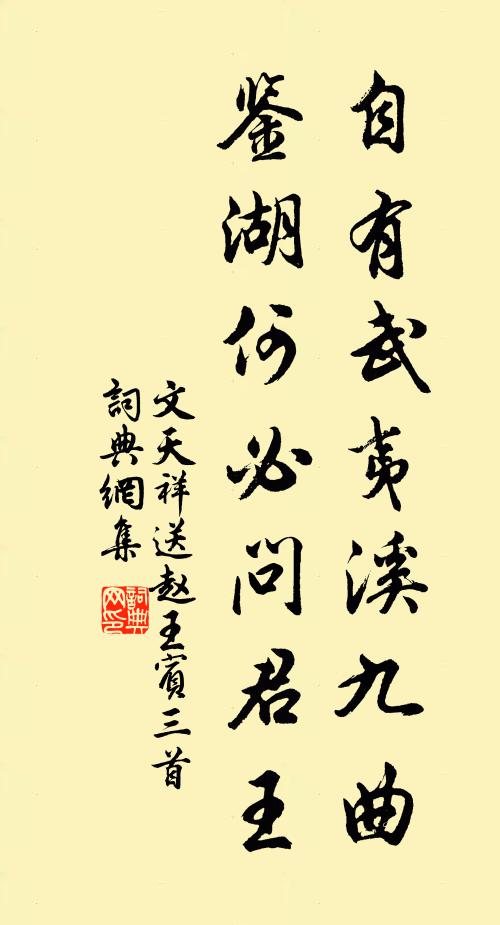 自有武夷溪九曲
鉴湖何必问君王
文天祥送赵王宾三首
詞典網集
詞典
网印